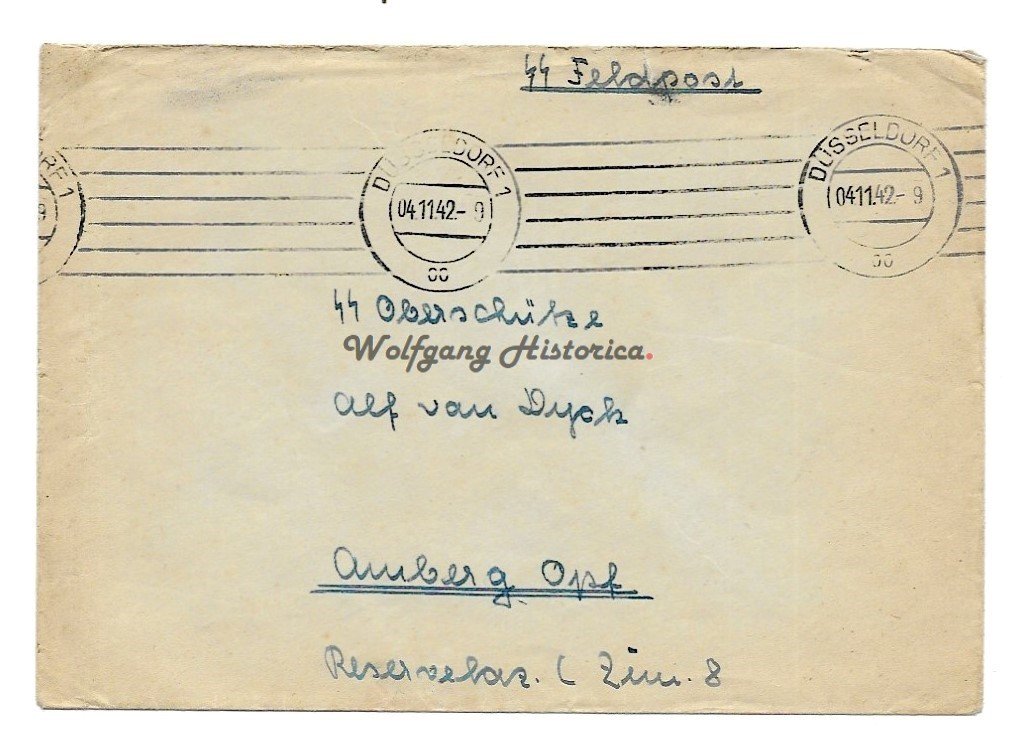 SS Feldpost
RF 1
9
DÜSSELDORF 1
04.11.42.- 9
oo
DÜSSELDORF 1
04.11.42.- 9
oo
SS Oberschütze
Wolfgang Historica.
Alf van Dyck
Amberg Opf
Reservelaz. ( Zim. 8